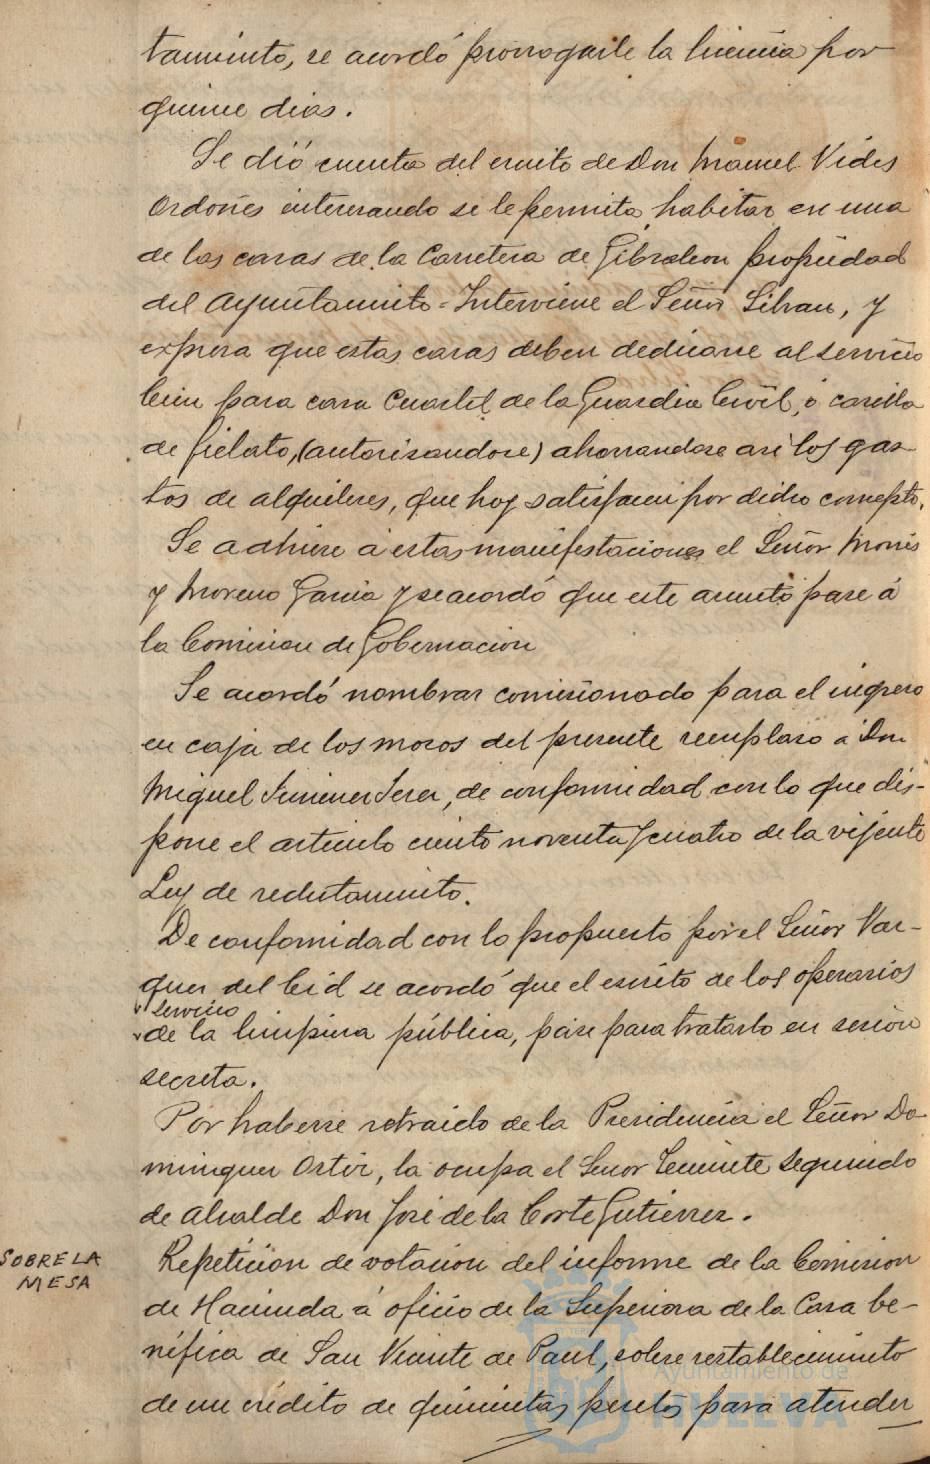 tamiento, se acordó prorrogarle la licencia por
quince dias.
Se dió cuenta del escrito de Don Manuel Vides
Ordoñes interesando se le permita habitar en una
de las casas de la Carretera de Gibraleon propiedad
del Ayuntamiento = Interviene el Señor Silvan, y
expresa que estas casas deben dedicarse al servicio
bien para casa Cuartel de la Guardia Civil, ó casilla
de fielato, (autorisandose) ahorrandose asi los gas-
tos de alquileres, que hoy satisfacen por dicho concepto.
Se adhiere á estas manifestaciones el Señor Monis
y Moreno Garcia y se acordó que este asunto pase á
la Comision de Gobernacion
Se acordó nombrar comisionado para el ingreso
en caja de los mosos del presente reemplaso á Don
Miguel Jimenez, de conformidad con lo que dis-
pone el articulo ciento noventa y cuatro de la vijente
Ley de reclutamiento.
De conformidad con lo propuesto por el Señor Vaz-
quez del Cid se acordó que el escrito de los operarios
servicio
de la limpieza pública, pase para tratarlo en sesion
secreta.
Por haberse retraido de la Presidencia el Señor Do-
minguez Ortiz, la ocupa el Señor Teniente segundo
de Alcalde Don José de la Corte Gutierrez.
SOBRE LA
MESA
Repeticion de votacion del informe de la Comision
de Hacienda á oficio de la Superiora de la Casa be-
néfica de San Vicente de Paul, sobre restablecimiento
de un crédito de quinientas pesetas para atender
Ayuntamiento de
HUELVA